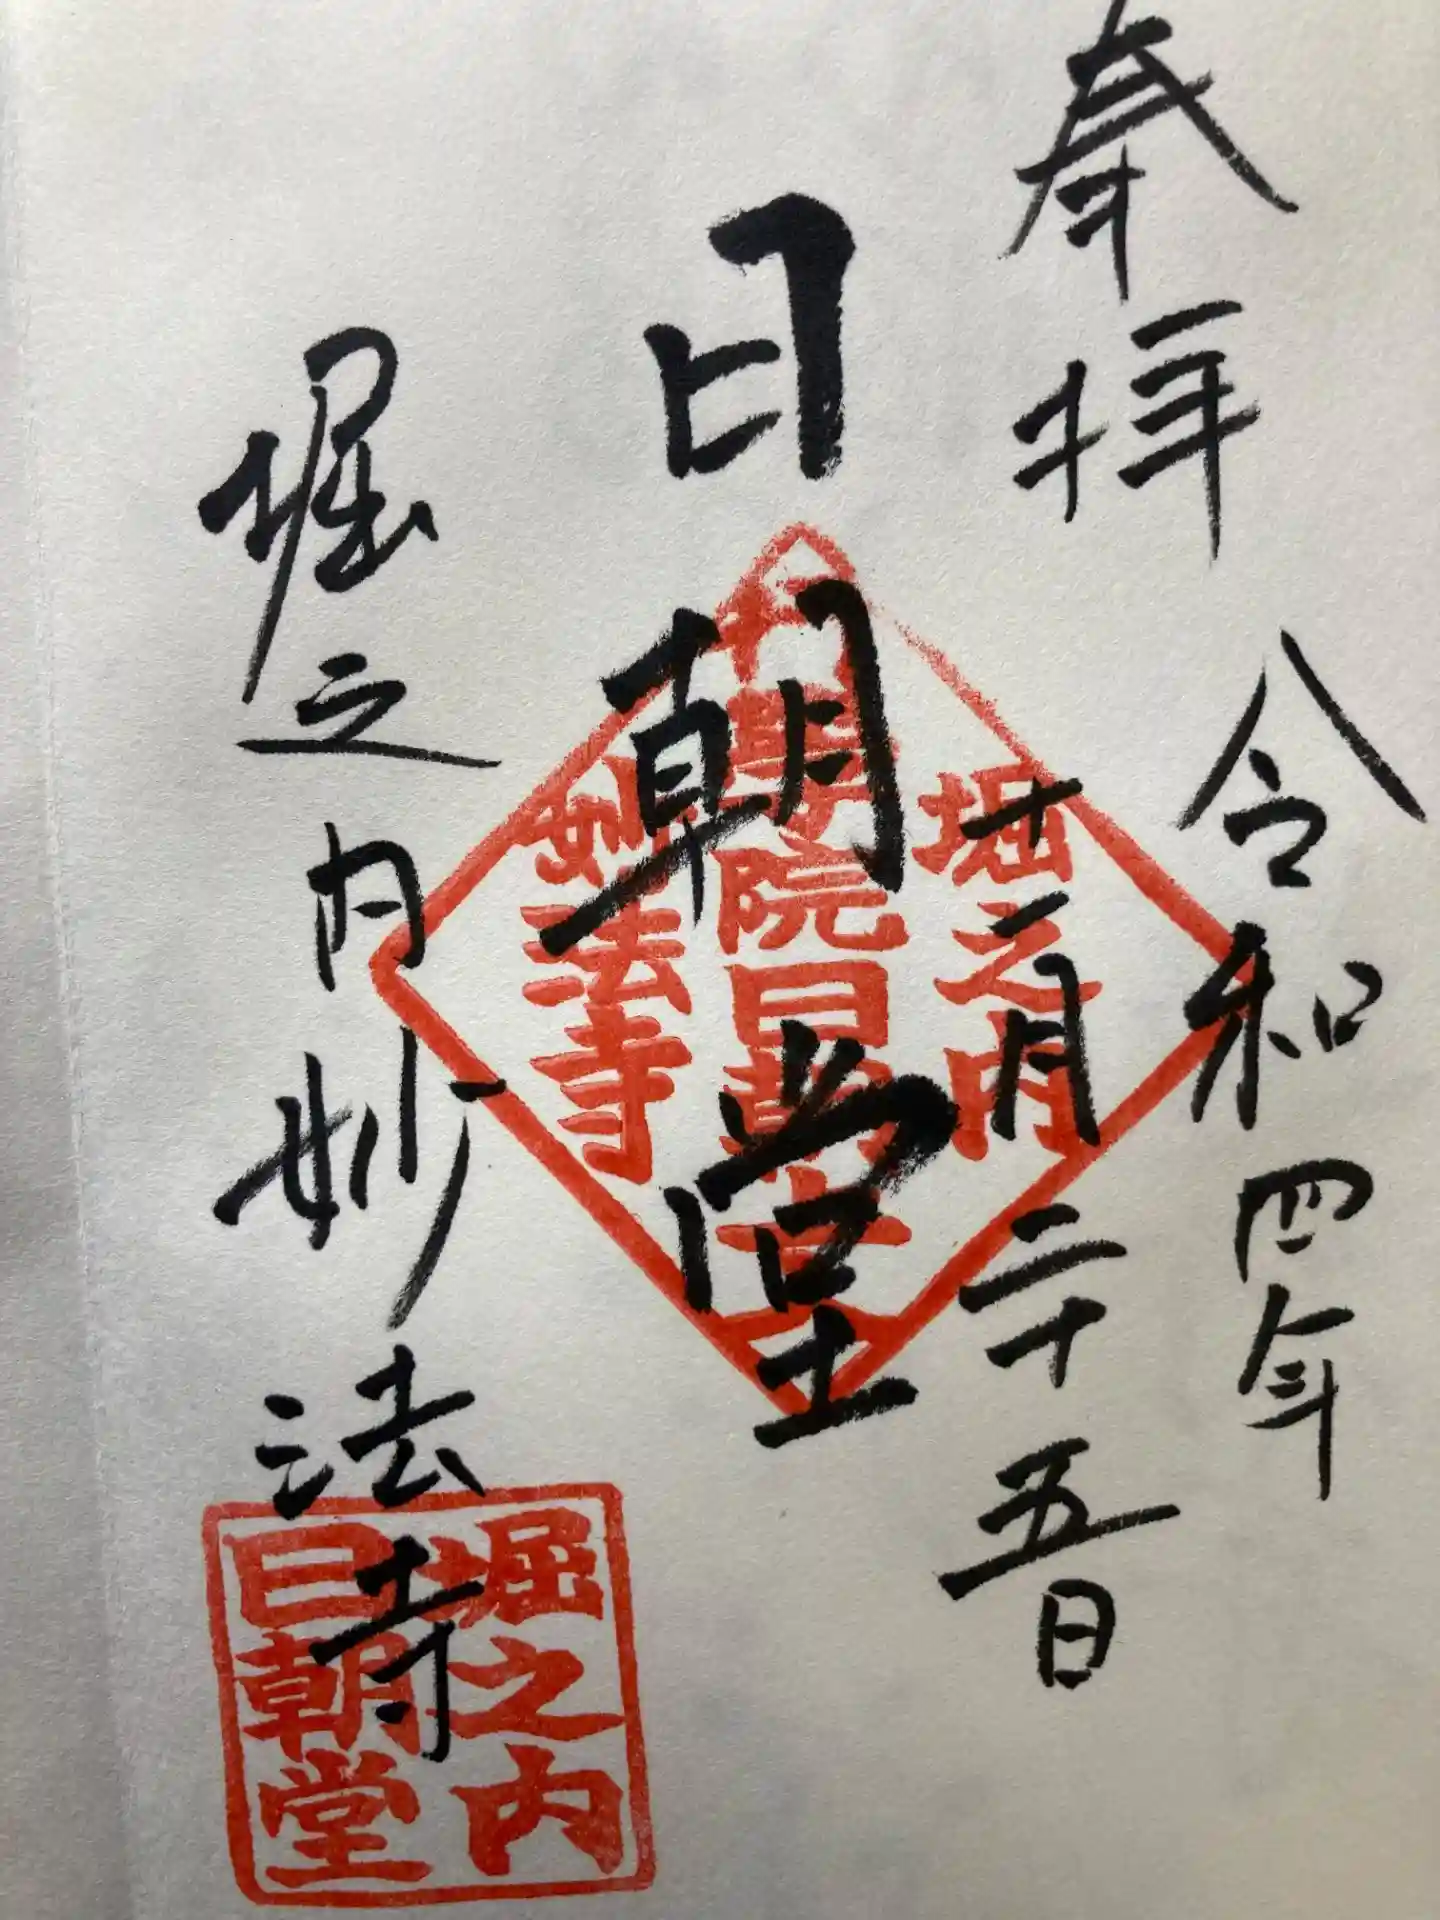 奉拝
令和四年
十二月二十五日
日朝堂
堀之内妙法寺
堀之内
学院日朝
妙法寺
堀之内
日朝堂